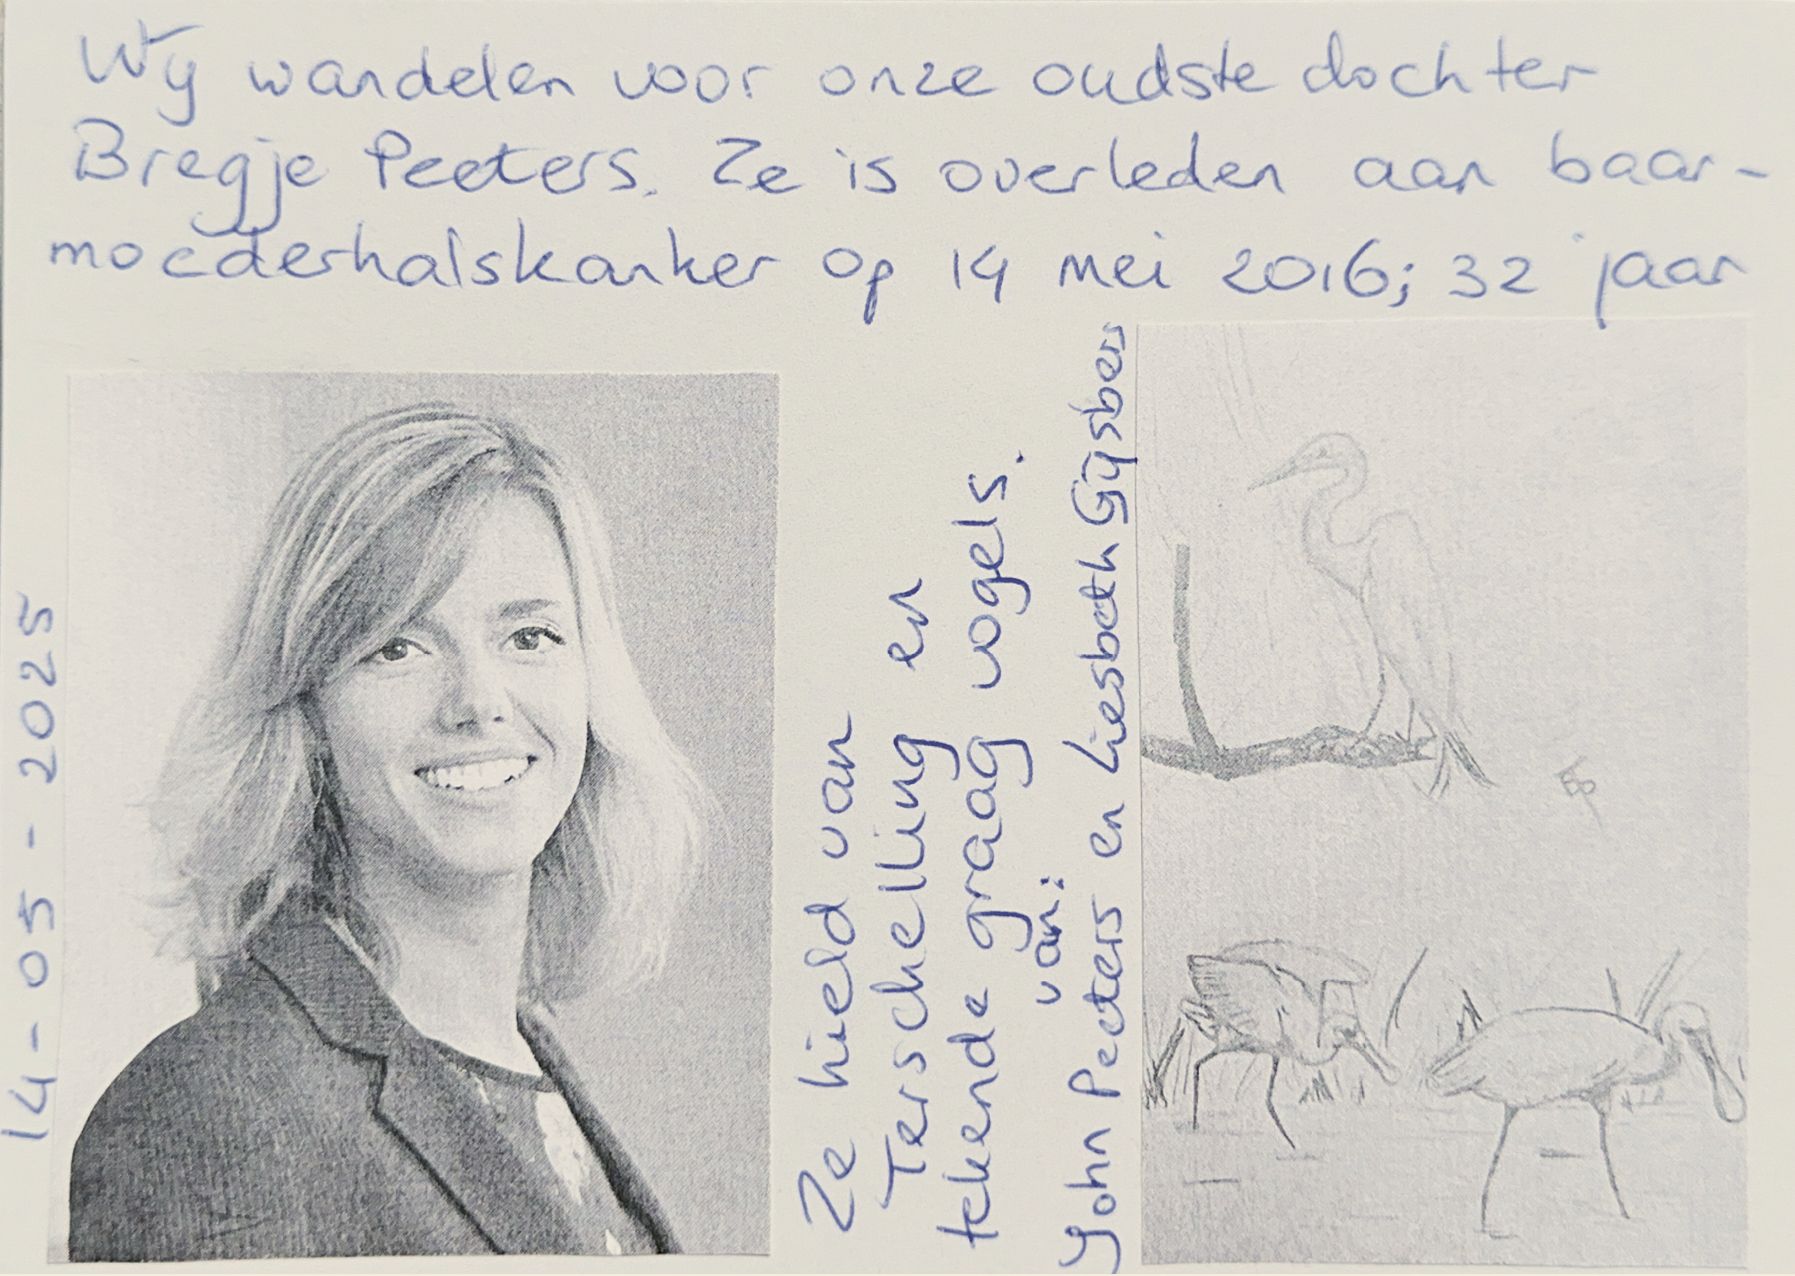 Wij wandelen voor onze oudste dochter
Bregje Peeters. Ze is overleden aan baar-
moederhalskanker op 14 mei 2016; 32 jaar
14-05-2025
Ze hield van
Terschelling en
tekende graag vogels.
van:
John Peeters en Liesbeth Gijsbers